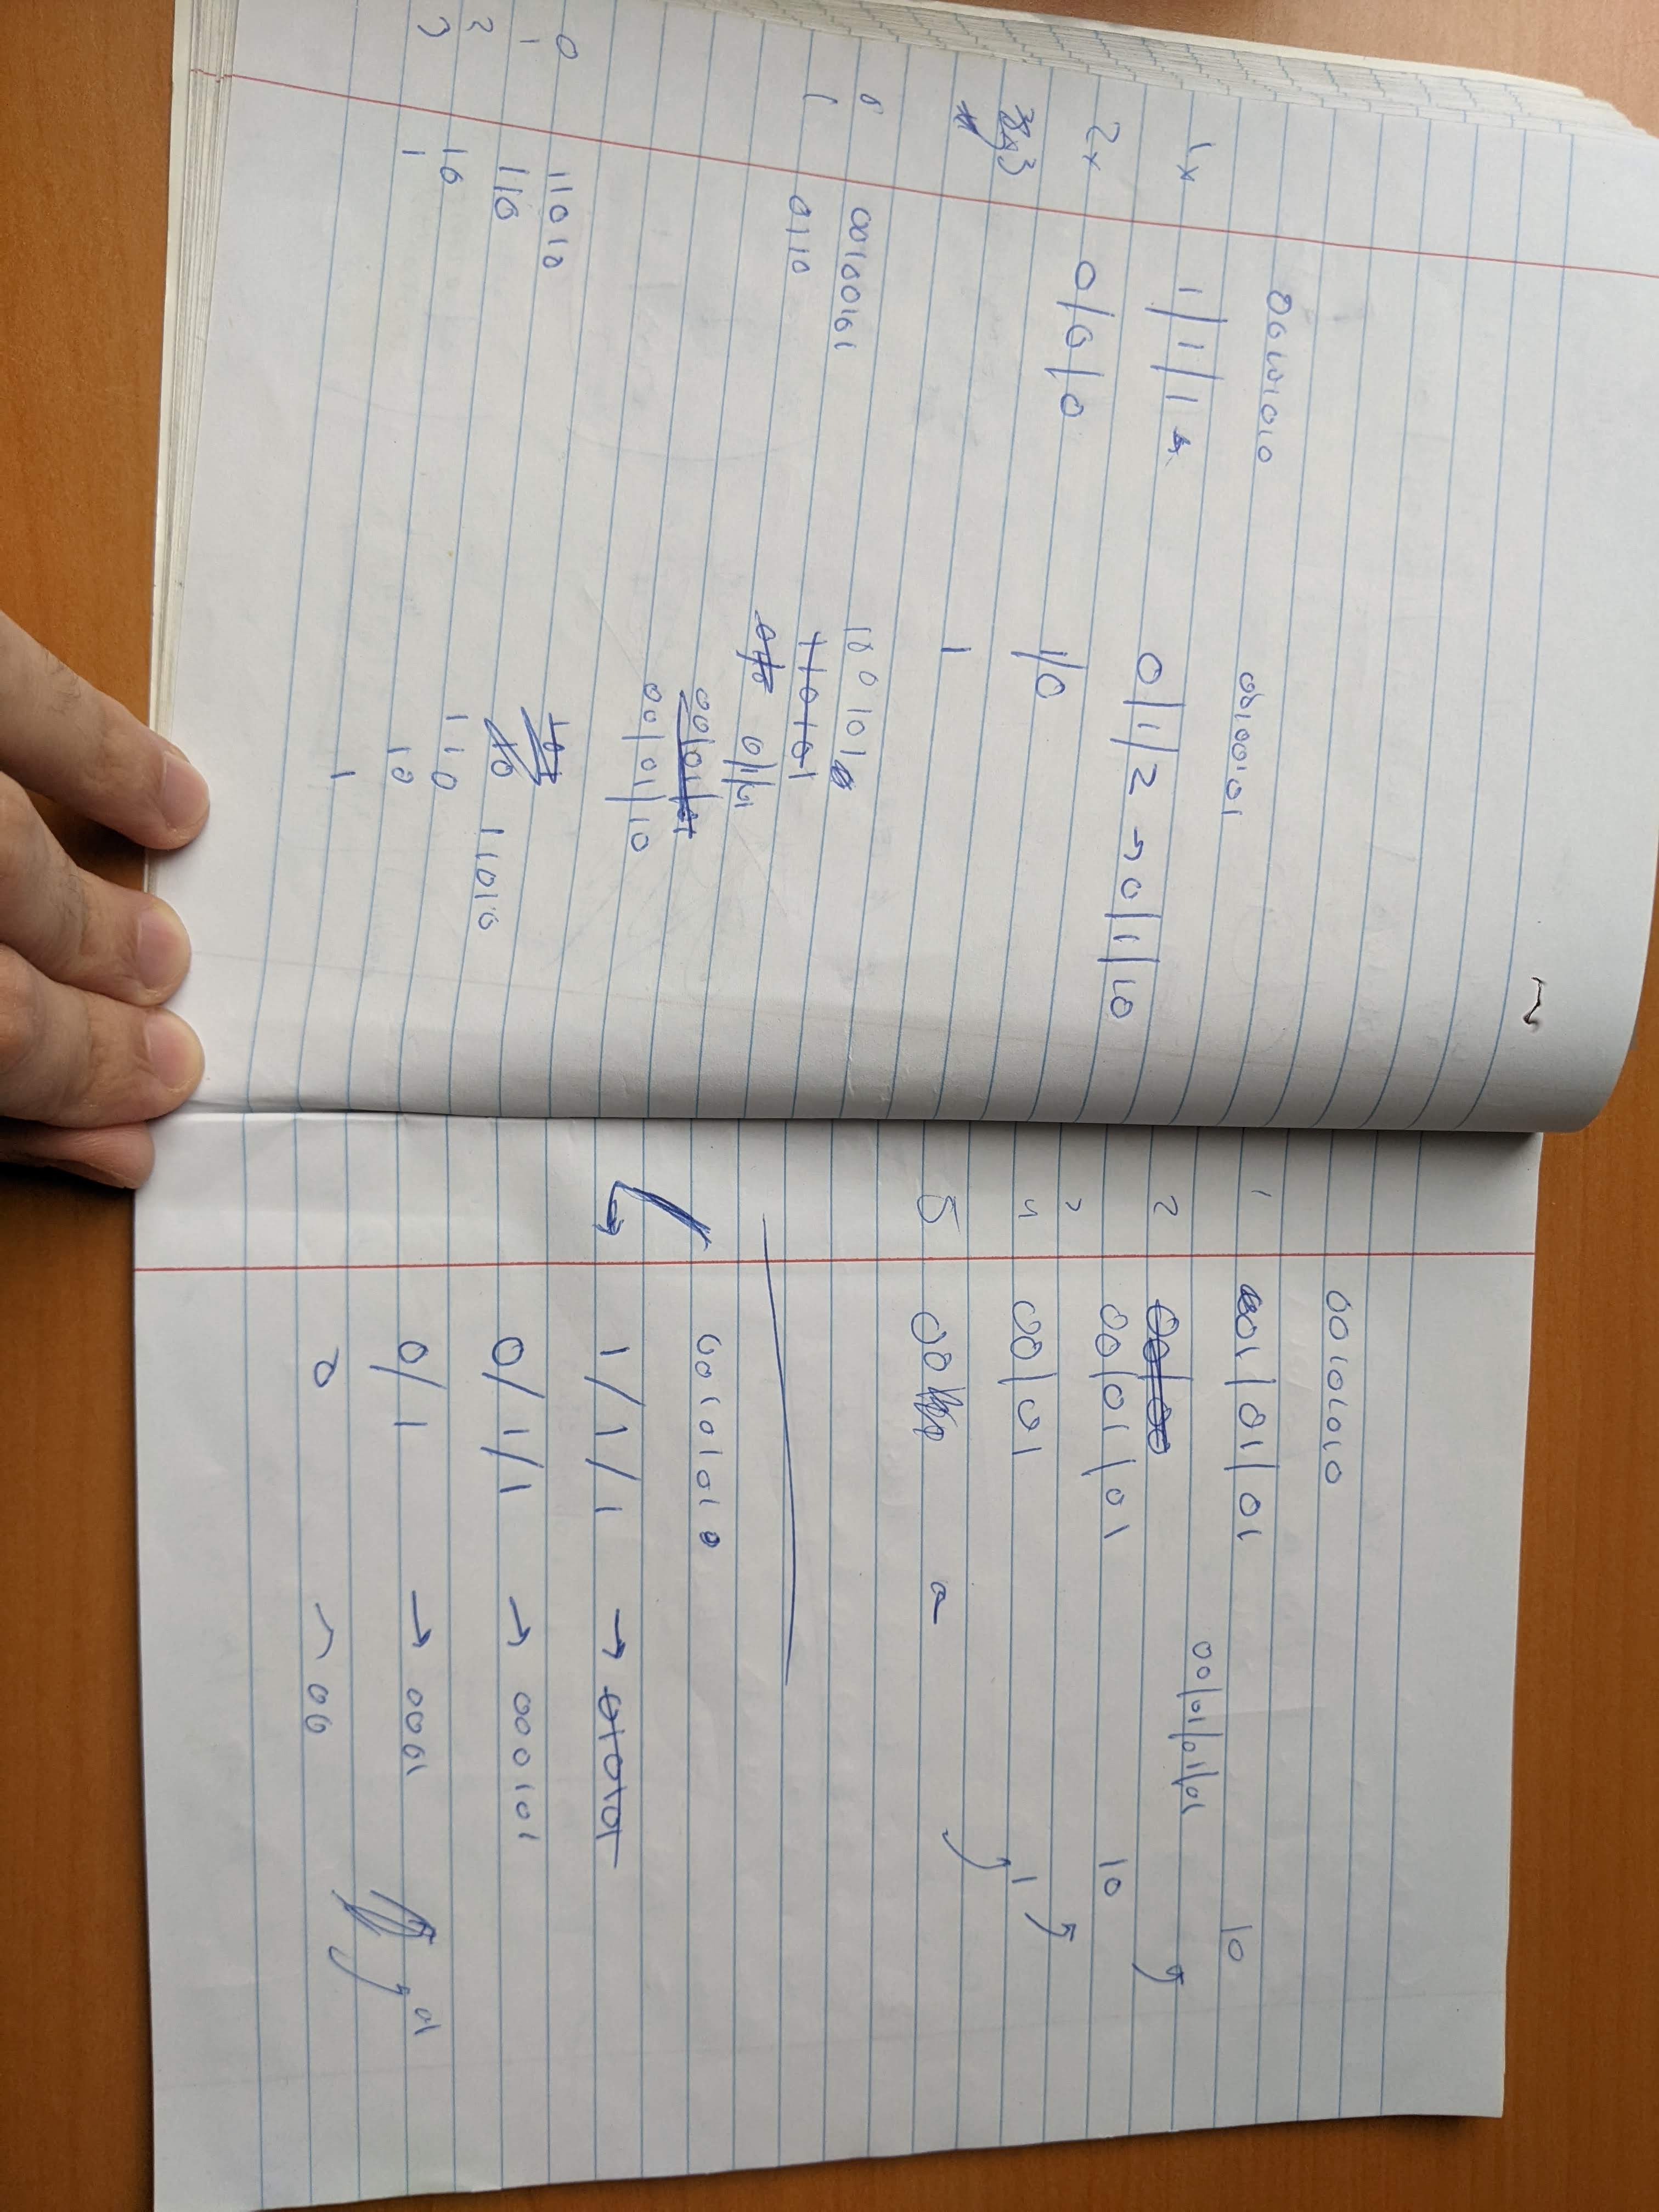 00101010
00100101
1x 1 | 1 | 1
0 | 1 | 2 → 0 | 1 | 10
2x 0 | 0 | 0
1 | 0
1
0 00100101
1001010
1 0110
11010101
010 0 | 1 | 1
00 | 01 | 10
0 11010
1 110
11010
2 10
110
3 1
10
1
00101010
1 001 | 01 | 01
10
00 | 01 | 01 | 01
2
3 00 | 01 | 01
10
4 00 | 01
1
5 00
a
00101010
1 / 1 / 1 → 010101
0 / 1 / 1 → 000101
0 / 1 → 0001
0 → 00